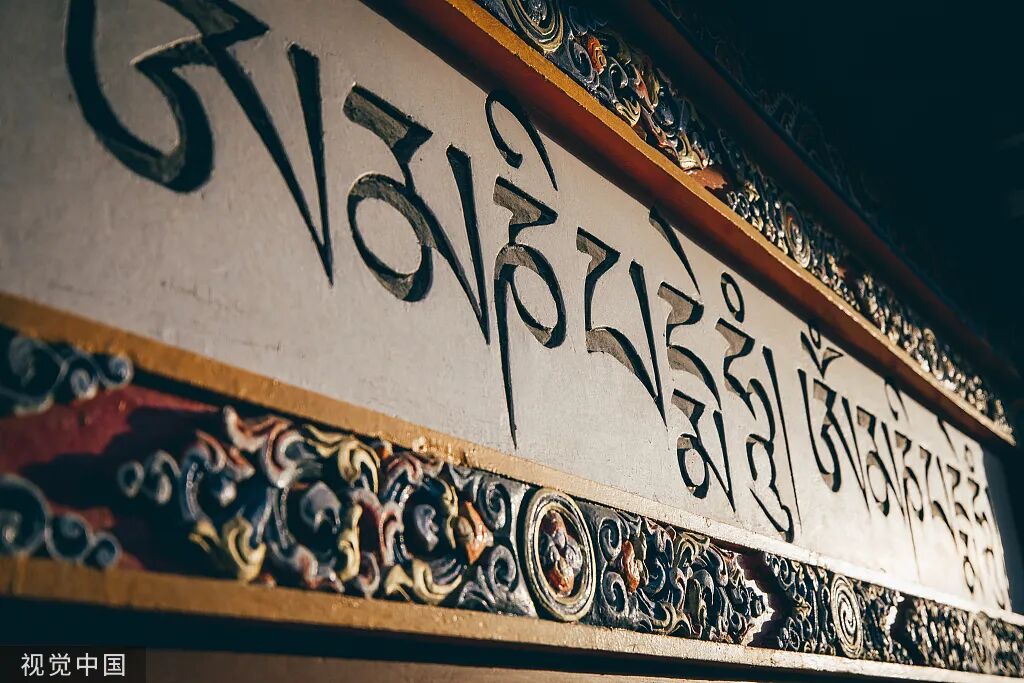 ཨོཾམཎིཔདྨེཧཱུྃ།ཨོཾམཎིཔདྨེཧཱུྃ
视觉中国